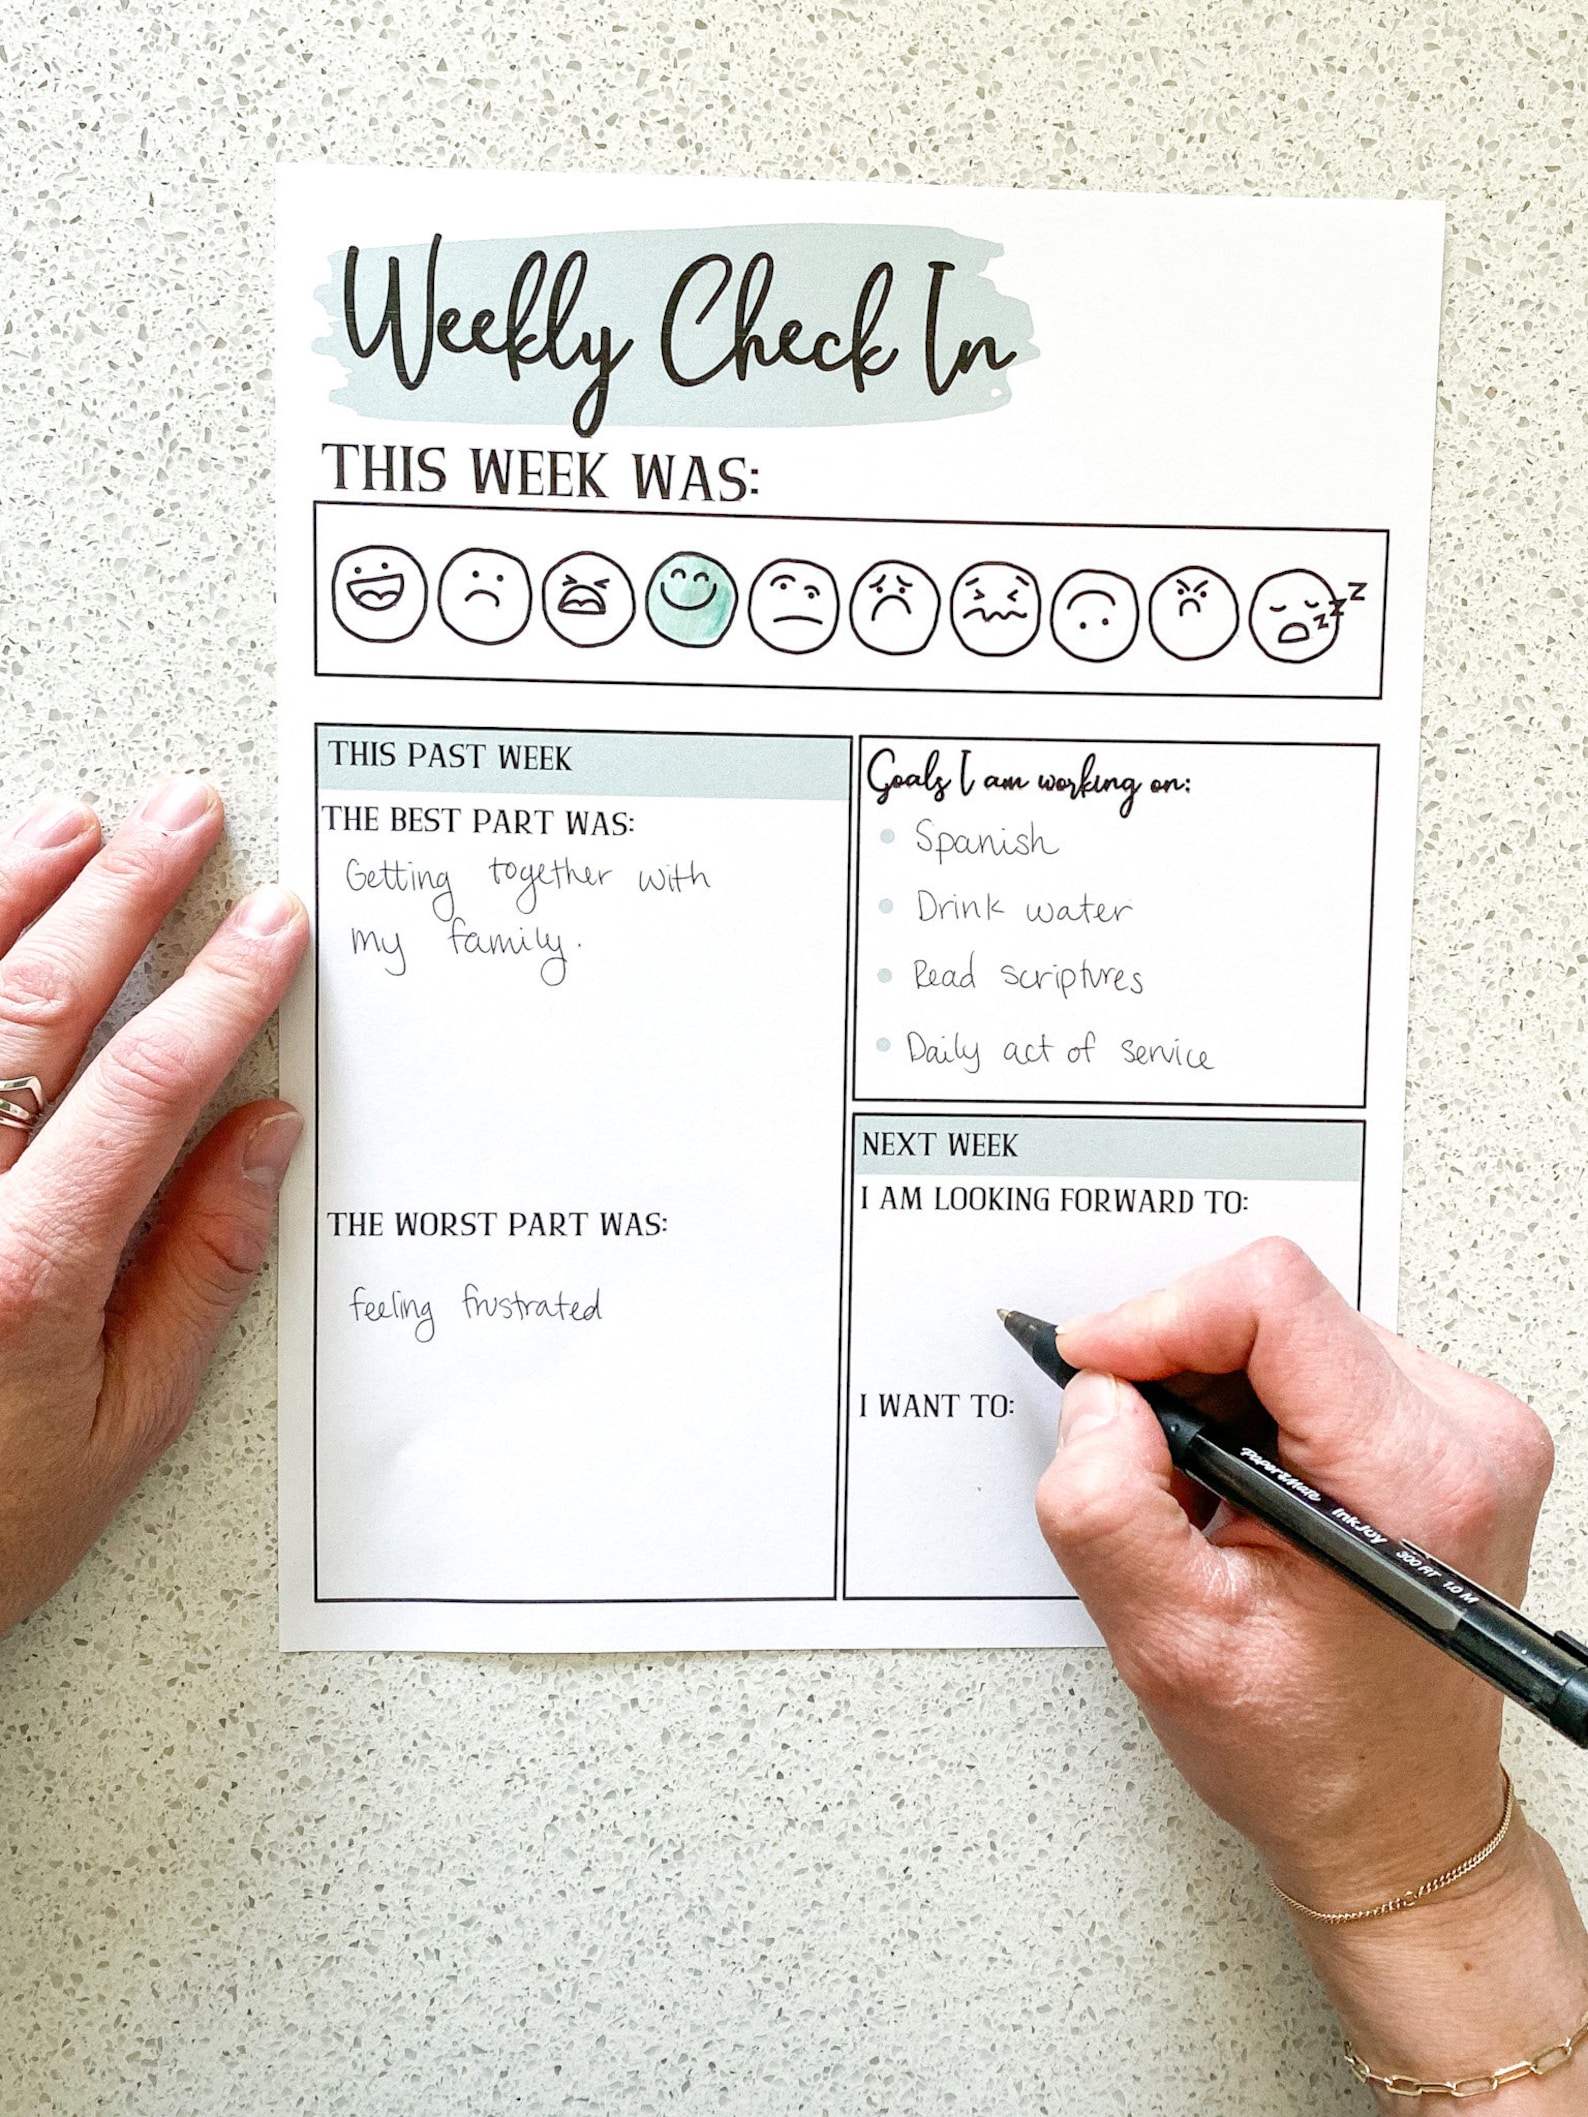 Weekly Check In
THIS WEEK WAS:
z z z
THIS PAST WEEK
THE BEST PART WAS:
Getting together with
my family.
THE WORST PART WAS:
feeling frustrated
Goals I am working on:
Spanish
Drink water
Read scriptures
Daily act of service
NEXT WEEK
I AM LOOKING FORWARD TO:
I WANT TO:
Paper Mate InkJoy 300 RT 1.0 M